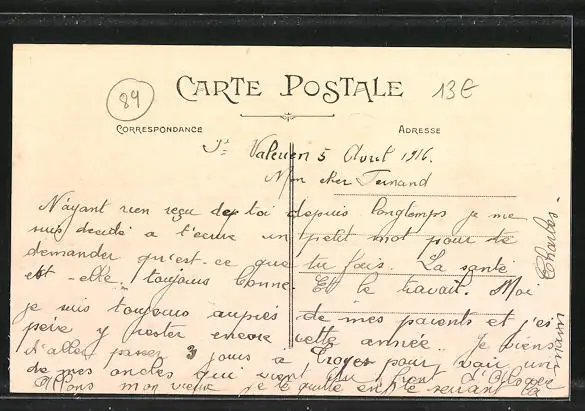 CARTE POSTALE
89
13€
CORRESPONDANCE
ADRESSE
St Valerien 5 Avril 1916.
Mon cher Fernand
N'ayant rien reçu de toi depuis longtemps je me
suis décidé a t'écrire un petit mot pour te
demander qu'est-ce que tu fais. La santé
est-elle toujours bonne. Et le travail. Moi
je suis toujours auprès de mes parents et j'es
père y rester encore cette année. Je viens
d'aller passer 3 jours a Troyes pour voir un
de mes oncles qui vient du front d'Alsace
Allons mon vieux je te quitte en te serrant la